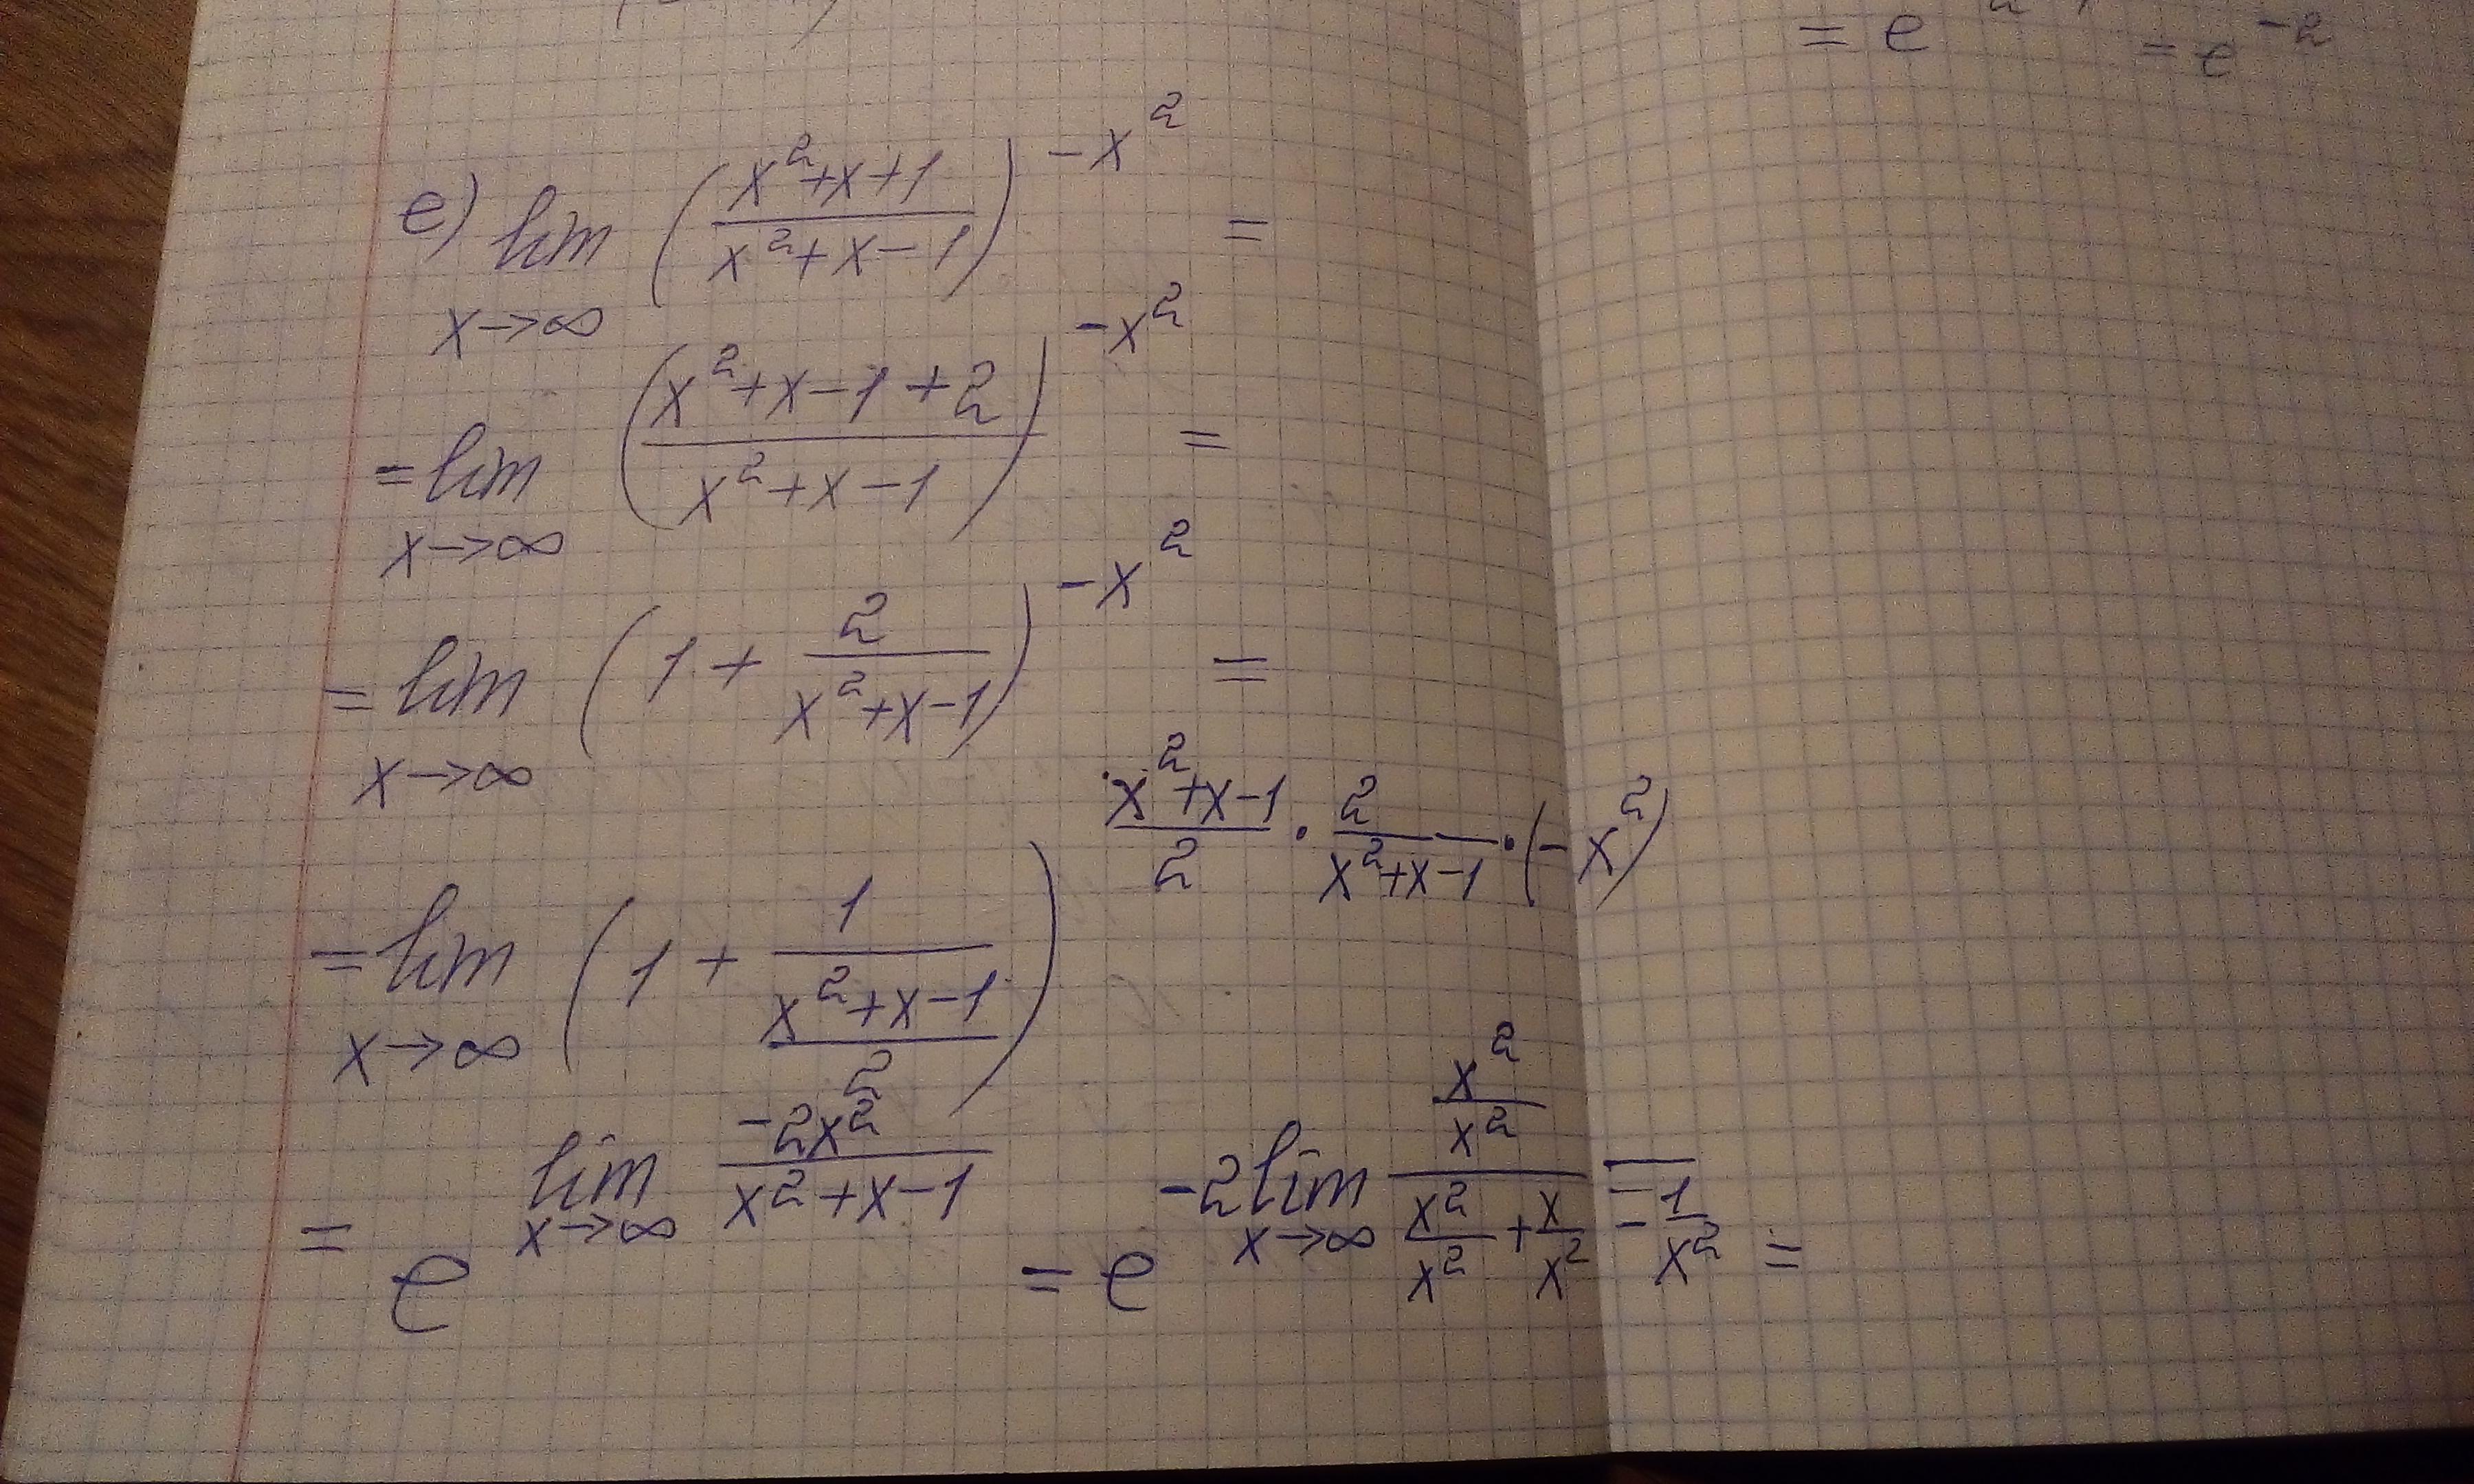 = e = e^-2
е) lim x→∞ ((x^2+x+1)/(x^2+x-1))^(-x^2) =
= lim x→∞ ((x^2+x-1+2)/(x^2+x-1))^(-x^2) =
= lim x→∞ (1 + 2/(x^2+x-1))^(-x^2) =
= lim x→∞ (1 + 1/((x^2+x-1)/2))^((x^2+x-1)/2 · 2/(x^2+x-1) · (-x^2))
= e^(lim x→∞ (-2x^2)/(x^2+x-1)) = e^(-2 lim x→∞ (x^2/x^2)/(x^2/x^2 + x/x^2 - 1/x^2)) =